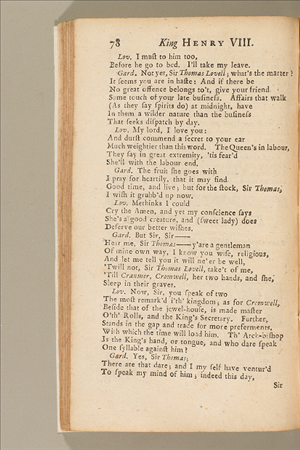 78 King HENRY VIII.
Lov. I must to him too,
Before he go to bed. I'll take my leave.
Gard. Not yet, Sir Thomas Lovell; what's the matter?
It seems you are in haste: And if there be
No great offence belongs to't, give your friend
Some touch of your late business. Affairs that walk
(As they say spirits do) at midnight, have
In them a wilder nature than the business
That seeks dispatch by day.
Lov. My lord, I love you:
And durst commend a secret to your ear
Much weightier than this word. The Queen's in labour,
They say in great extremity, 'tis fear'd
She'll with the labour end.
Gard. The fruit she goes with
I pray for heartily, that it may find
Good time, and live; but for the stock, Sir Thomas,
I wish it grubb'd up now.
Lov. Methinks I could
Cry the Amen, and yet my conscience says
She's a good creature, and (sweet lady) does
Deserve our better wishes.
Gard. But Sir, Sir——
Hear me, Sir Thomas——y'are a gentleman
Of mine own way, I know you wise, religious,
And let me tell you it will ne'er be well,
'Twill not, Sir Thomas Lovell, take't of me,
'Till Cranmer, Cromwell, her two hands, and she,
Sleep in their graves.
Lov. Now, Sir, you speak of two
The most remark'd i'th' kingdom; as for Cromwell,
Beside that of the jewel-house, is made master
O'th' Rolls, and the King's Secretary. Further,
Stands in the gap and trade for more preferments,
With which the time will load him. Th' Arch-bishop
Is the King's hand, or tongue, and who dare speak
One syllable against him?
Gard. Yes, Sir Thomas,
There are that dare; and I my self have ventur'd
To speak my mind of him; indeed this day,
Sir